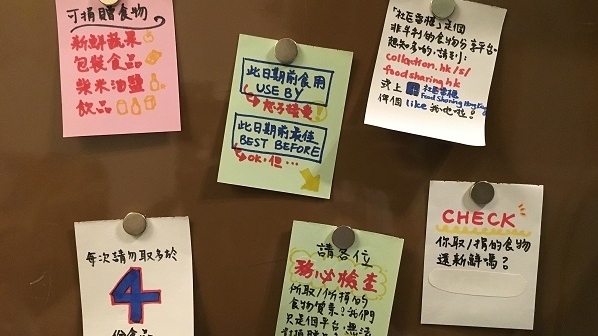 可捐贈食物
新鮮蔬果
包裝食品
柴米油鹽
飲品
此日期前食用
USE BY
此日期前最佳
BEST BEFORE
OK,但…
「社區雪櫃」是個
非牟利的食物分享平台。
想知多的,請到:
collaction.hk/s/
foodsharinghk
或上 f 社區雪櫃
Food Sharing Hong Kong
俾個 like 我地啦!
每次請勿取多於
4
個食品
請各位
務必檢查
所取/所捐的
食物質素!我們
只是個平台,無法
CHECK
你取/捐的食物
還新鮮嗎?